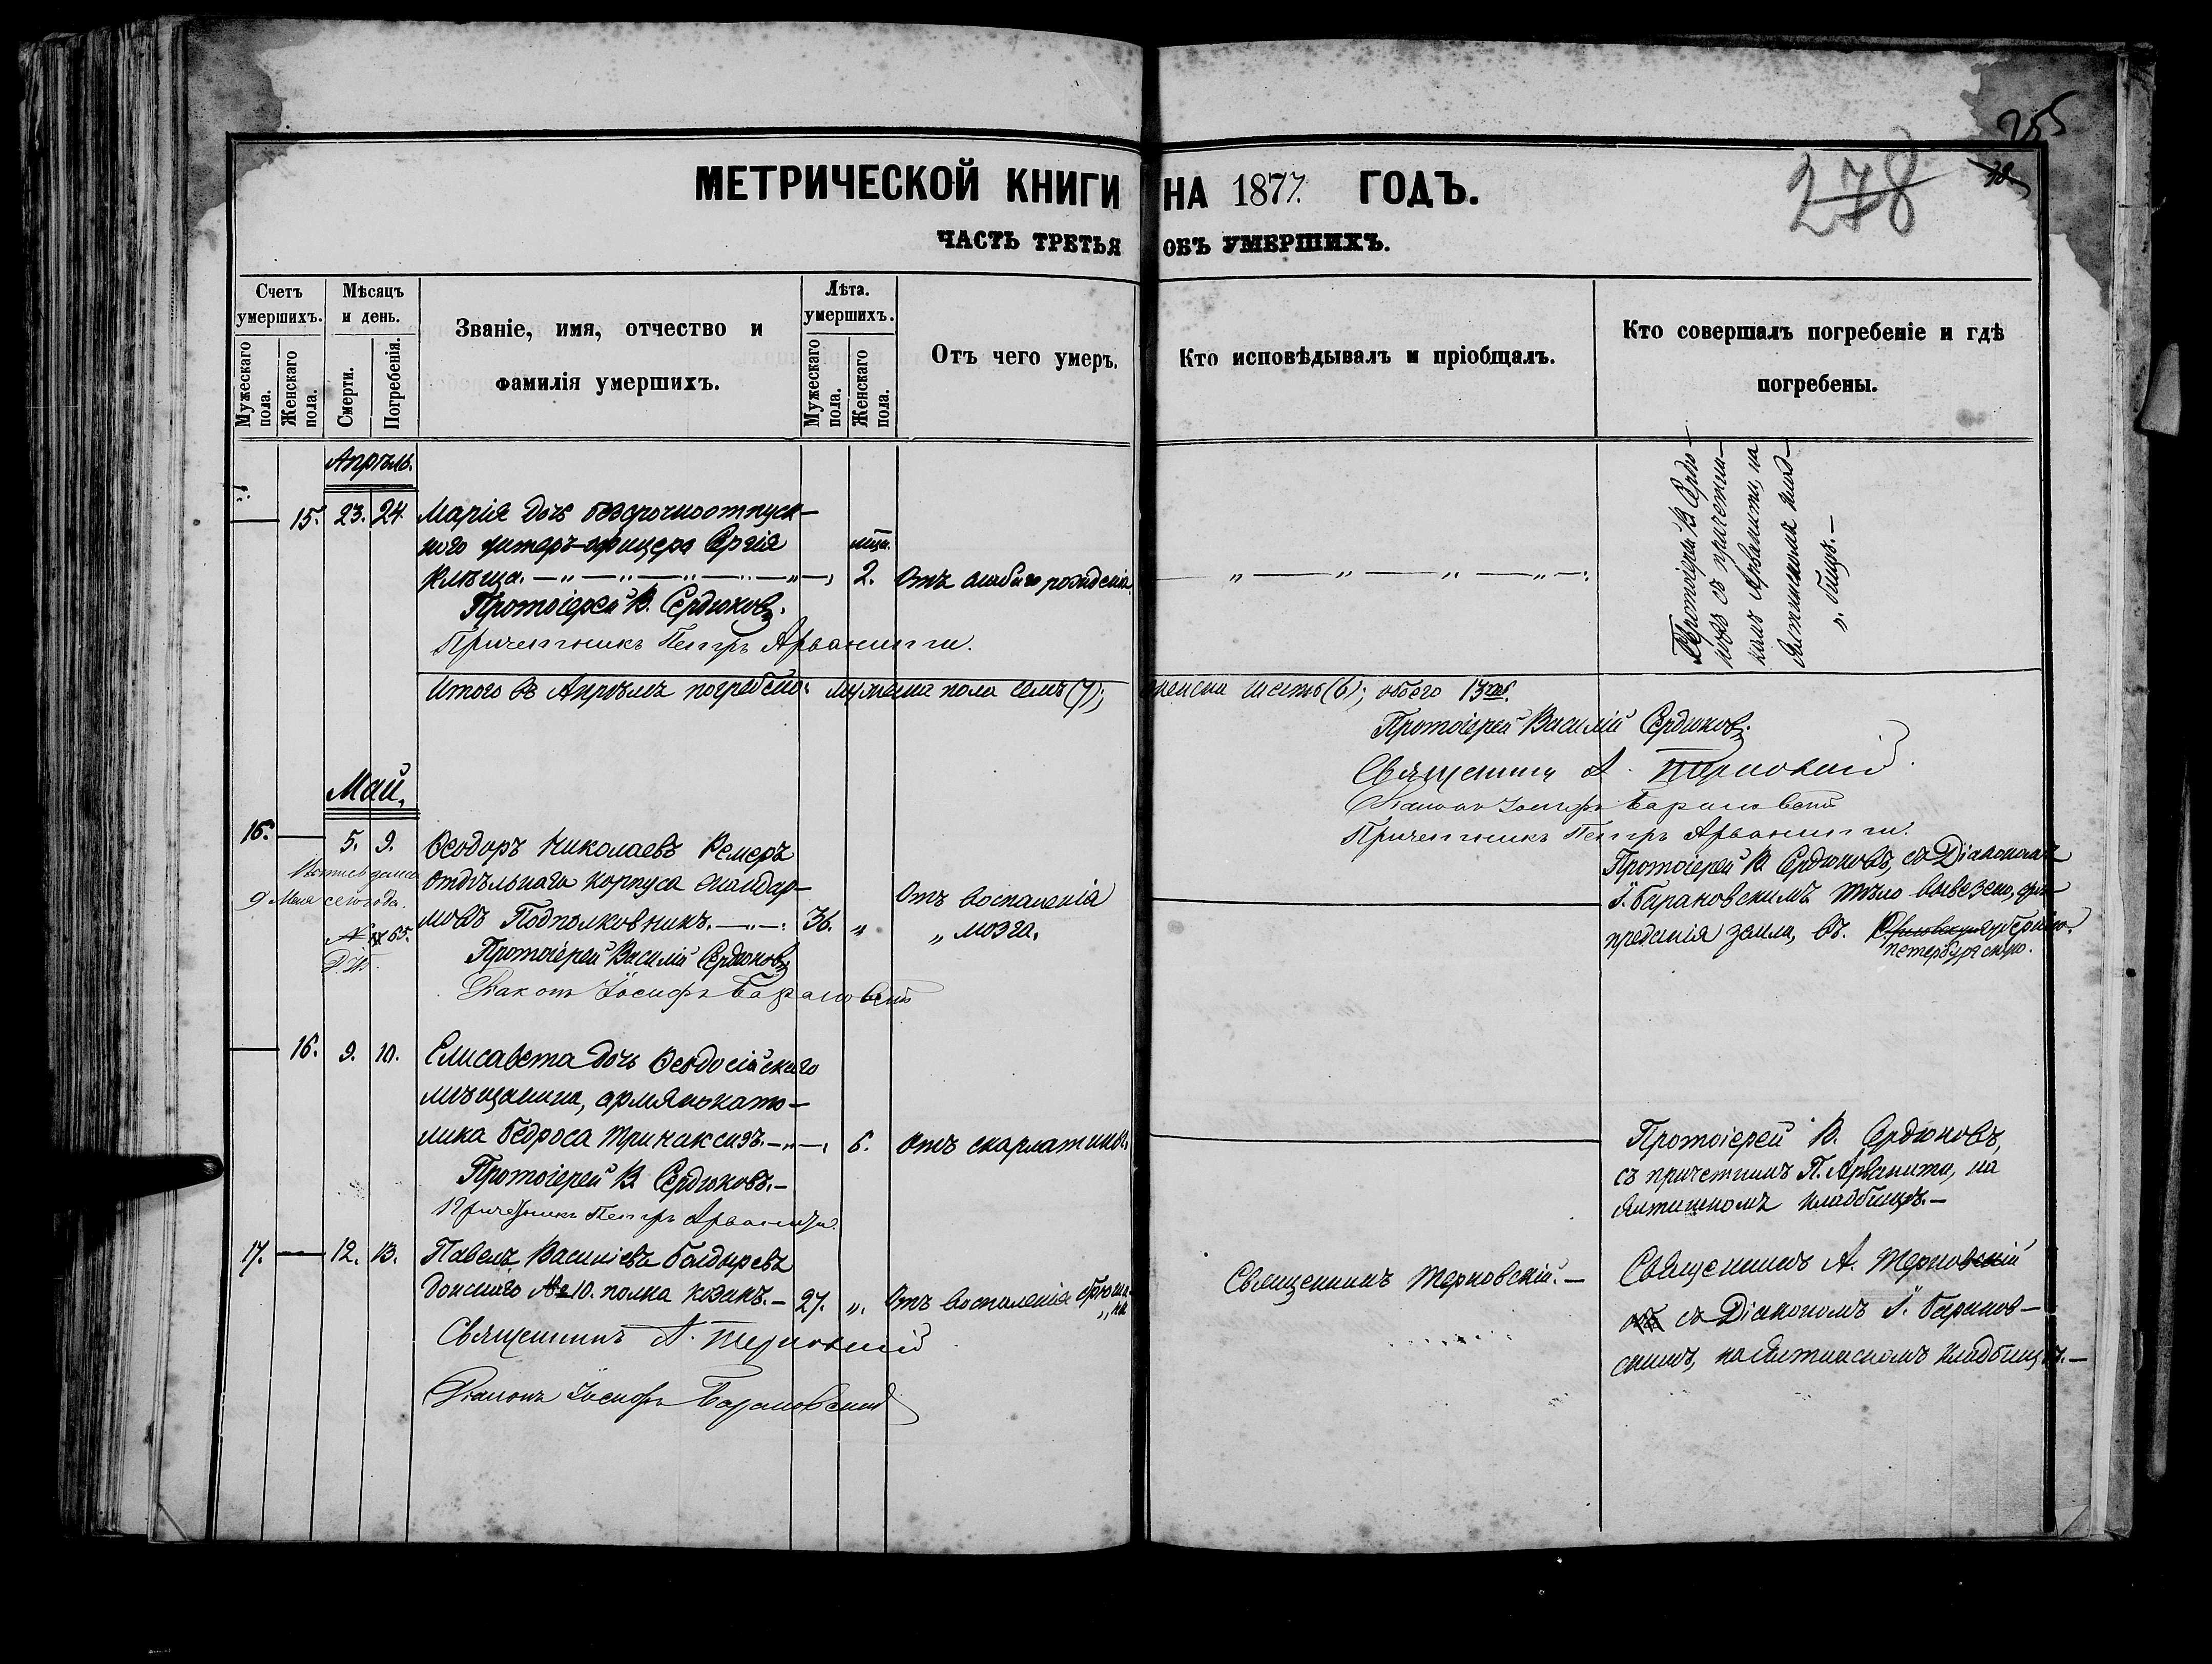 255
278
МЕТРИЧЕСКОЙ КНИГИ НА 1877. ГОДЪ.
ЧАСТЬ ТРЕТЬЯ ОБЪ УМЕРШИХЪ.
Счетъ умершихъ.
Мужескаго пола.
Женскаго пола.
Мѣсяцъ и день.
Смерти.
Погребенія.
Званіе, имя, отчество и
фамилія умершихъ.
Лѣта. умершихъ.
Мужескаго пола.
Женскаго пола.
Отъ чего умеръ.
Кто исповѣдывалъ и пріобщалъ.
Кто совершалъ погребеніе и гдѣ
погребены.
Апрѣль.
15. 23. 24. Марія дочь безсрочноотпуск-
ного унтеръ-офицера Сергія
Клѣща. 2. Отъ слабаго рожденія
Протоіерей В. Сердюковъ.
Причетникъ Петръ Арванити.
Протоіерей В. Сердю-
ковъ съ причетни-
комъ Арванити, на
Ялтинскомъ клад-
„бищѣ.-
Итого въ Апрѣлѣ погребено: мужеска пола семь (7); женска шесть (6); обоего 13.
Протоіерей Василій Сердюковъ
Священникъ А. Терновскій.
Діаконъ Іосифъ Барановскій
Причетникъ Петръ Арванити.
Май.
16. 5. 9. Ѳеодоръ Николаевъ Ремеръ
отдѣльнаго корпуса жандар-
мовъ Подполковникъ. 36. „ Отъ воспаленія
„ мозга.
9 Мая сего года.
№ 65.
Протоіерей Василій Сердюковъ
Діаконъ Іосифъ Барановскій
Протоіерей В. Сердюковъ, съ Діакономъ
І. Барановскимъ тѣло вывезено, для
преданія земли, въ губернію.
Петербургскую.
16. 9. 10. Елисавета дочь Ѳеодосійскаго
мѣщанина, армянокато-
лика Бедроса Тринаксизъ. 6. Отъ скарлатины.
Протоіерей В. Сердюковъ.-
Причетникъ Петръ Арванити.
Протоіерей В. Сердюковъ,
съ причетникомъ П. Арванити, на
Ялтинскомъ кладбищѣ.-
17. 12. 13. Павелъ Василіевъ Болдыревъ
Донскаго № 10. полка козакъ.- 27. „. Отъ воспаленія брюш-
„ка
Священникъ А. Терновскій
Діаконъ Іосифъ Барановскій
Священникъ Терновскій.-
Священникъ А. Терновскій
съ Діакономъ І. Баранов-
скимъ, на Ялтинскомъ кладбищѣ.-